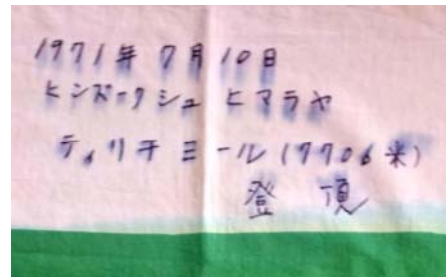 1971年 7月 10日
ヒンズークシュ ヒマラヤ
ティリチミール(7706米)
登頂